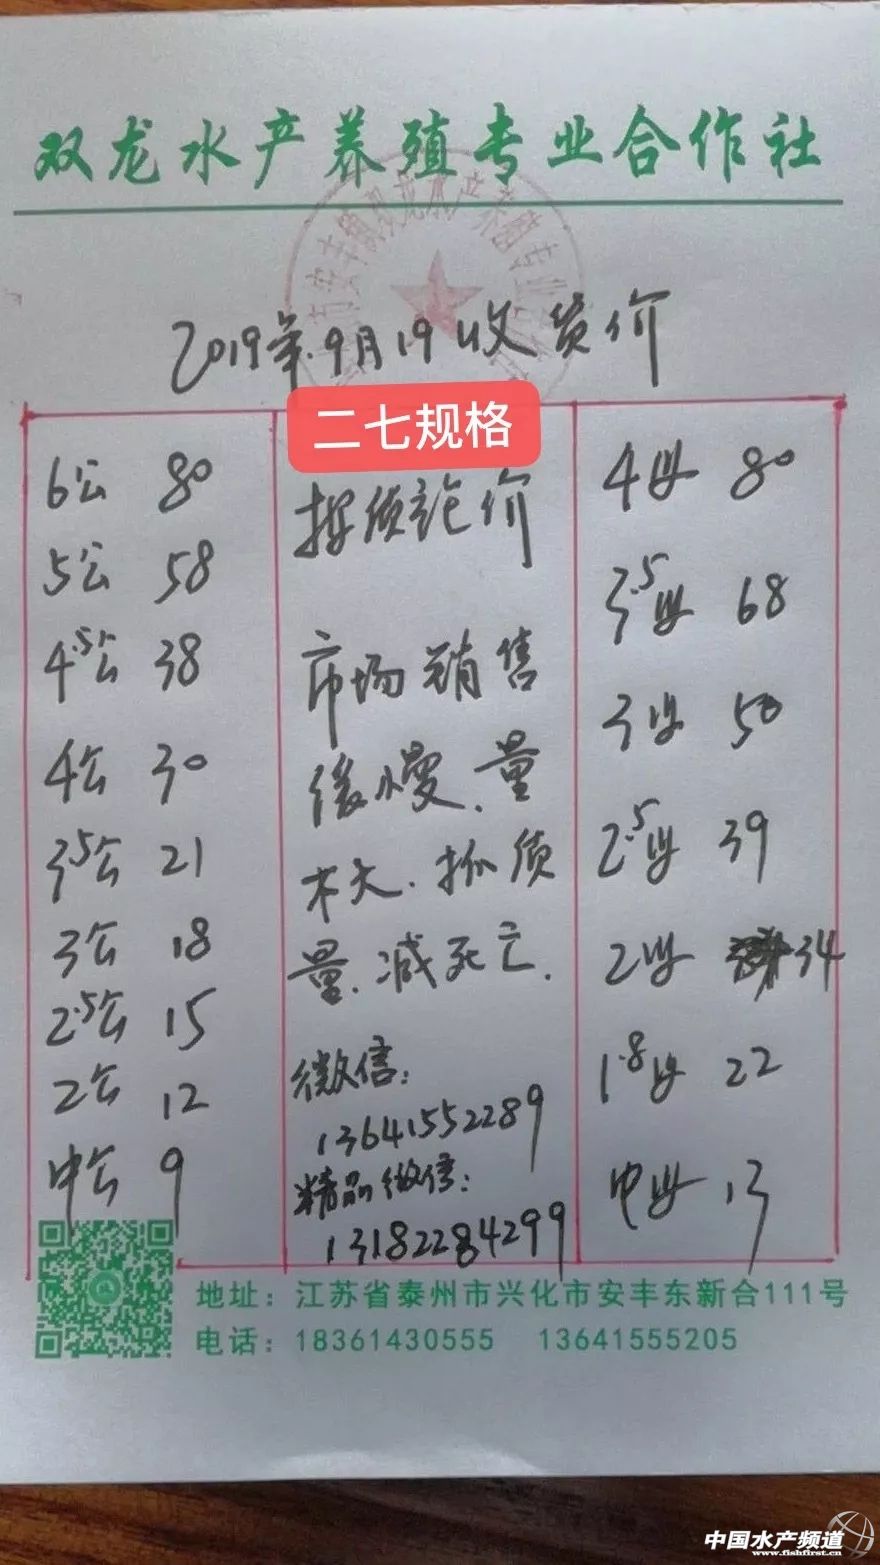 双龙水产养殖专业合作社
2019年9月19收货价
二七规格
6公 80
5公 58
4.5公 38
4公 30
3.5公 21
3公 18
2.5公 15
2公 12
中公 9
按质论价
市场销售
缓慢.量
不大.抓质
量.减死亡.
微信:
13641552289
精品微信:
13182284299
4母 80
3.5母 68
3母 50
2.5母 39
2母 34
1.8母 22
中母 13
地址:江苏省泰州市兴化市安丰东新合111号
电话:18361430555 13641555205
中国水产频道
www.fishfirst.cn